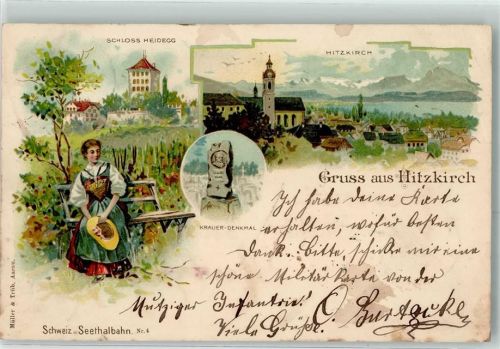 SCHLOSS HEIDEGG
HITZKIRCH
KRAUER-DENKMAL
Gruss aus Hitzkirch
Ich habe deine Karte
erhalten, wofür besten
Dank. Bitte, schicke mir eine
schöne Militärkarte von der
Mutziger Infantrie!
Viele Grüße! O.
Müller & Trüb, Aarau.
Schweiz. Seethalbahn. Nr. 4